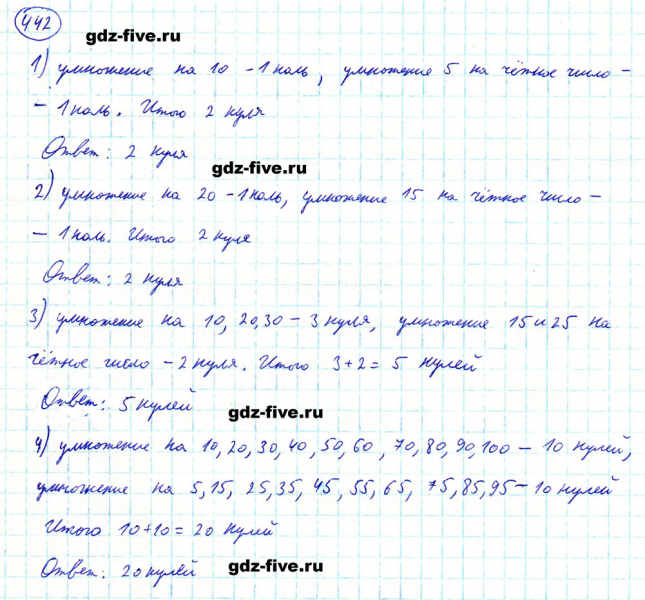 442
gdz-five.ru
1) умножение на 10 - 1 ноль, умножение 5 на чётное число -
- 1 ноль. Итого 2 нуля
Ответ: 2 нуля
gdz-five.ru
2) умножение на 20 - 1 ноль, умножение 15 на чётное число -
- 1 ноль. Итого 2 нуля
Ответ: 2 нуля
3) умножение на 10, 20, 30 - 3 нуля, умножение 15 и 25 на
чётное число - 2 нуля. Итого 3+2 = 5 нулей
Ответ: 5 нулей
gdz-five.ru
4) умножение на 10, 20, 30, 40, 50, 60, 70, 80, 90, 100 - 10 нулей,
умножение на 5, 15, 25, 35, 45, 55, 65, 75, 85, 95 - 10 нулей
Итого 10+10 = 20 нулей
Ответ: 20 нулей
gdz-five.ru